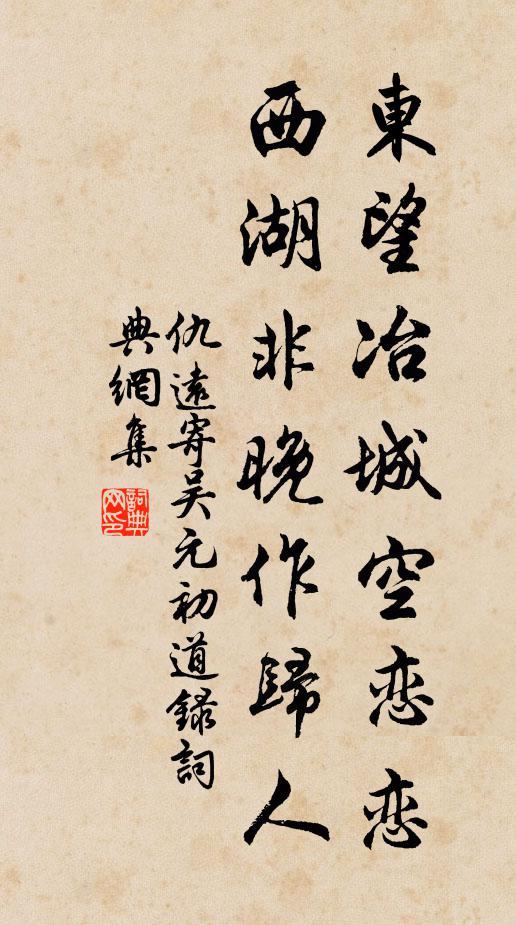 東望冶城空恋恋
西湖非晚作歸人
仇遠寄吴元初道録詞
典網集
詞典網印